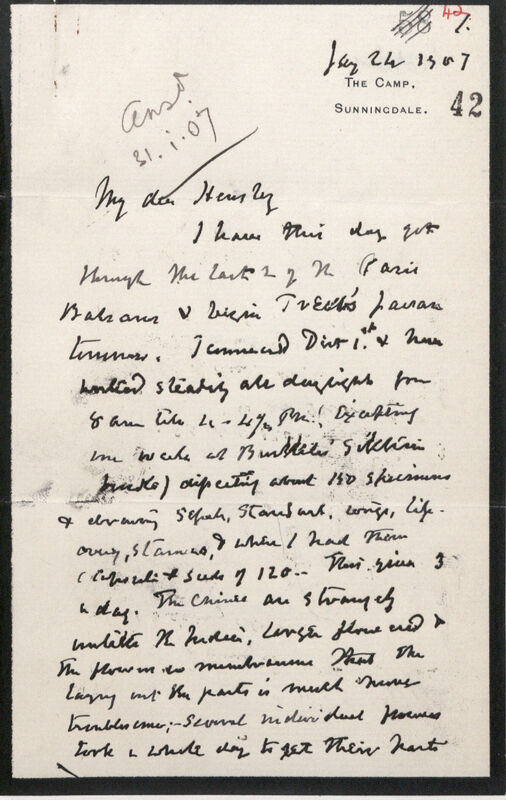 42
58 7.
Jany 24 1907
THE CAMP,
SUNNINGDALE.
42
Ansd
31.i.07
My dear Hemsley
I have this day got
through the last of the Paris
Balsams & begin Tutcher's
tomorrow. I commenced Dec 1st & have
worked steadily all daylight from
8 am till 4 - 4½ PM. (excepting
one week at Burkill's Sikkim
) dissecting about 150 specimens
& drawing sepals, standard, wings, lip,
ovary, stamens, & when I had them
capsule & seeds of 120 -. This gives 3
a day. The Chinese are strangely
unlike the Indian, larger flowered &
the flowers so membranous that the
laying out the parts is much more
troublesome; - Several individual flowers
took a whole day to get their parts